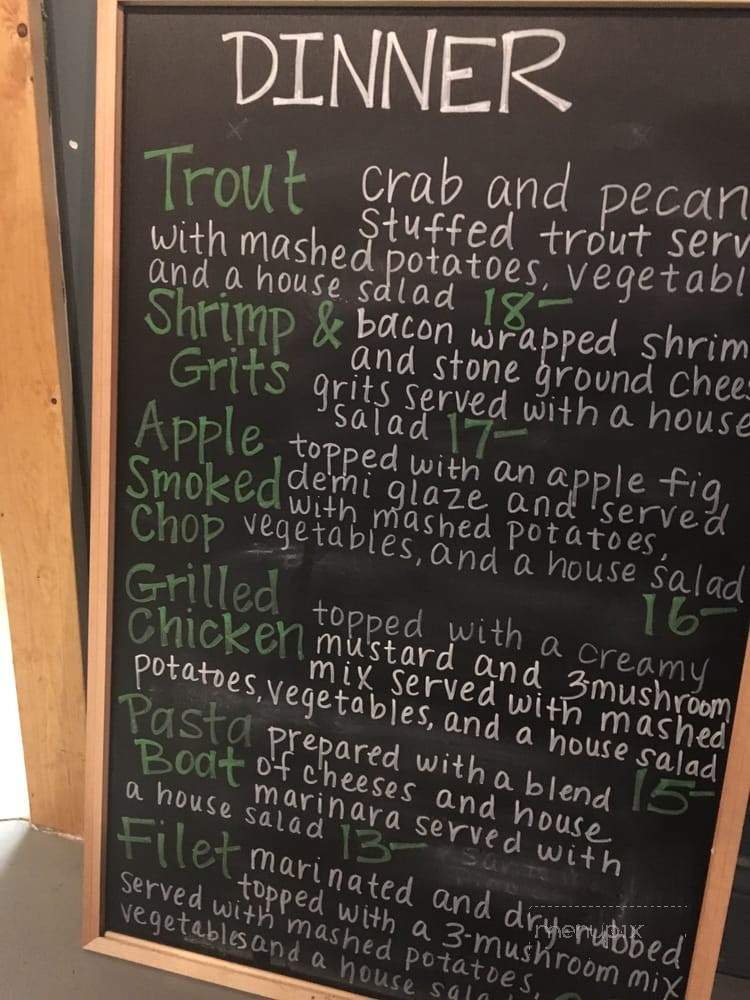 DINNER
Trout crab and pecan
stuffed trout serv
with mashed potatoes, vegetabl
and a house salad 18-
Shrimp & bacon wrapped shrim
Grits and stone ground chee
grits served with a house
salad 17-
Apple topped with an apple fig
Smoked demi glaze and served
with mashed potatoes,
Chop vegetables, and a house salad
16-
Grilled
Chicken topped with a creamy
mustard and 3mushroom
mix served with mashed
potatoes, vegetables, and a house salad
15-
Pasta prepared with a blend
Boat of cheeses and house
marinara served with
a house salad 13-
Filet marinated and dry rubbed
topped with a 3-mushroom mix
served with mashed potatoes,
vegetables and a house sala
menupix